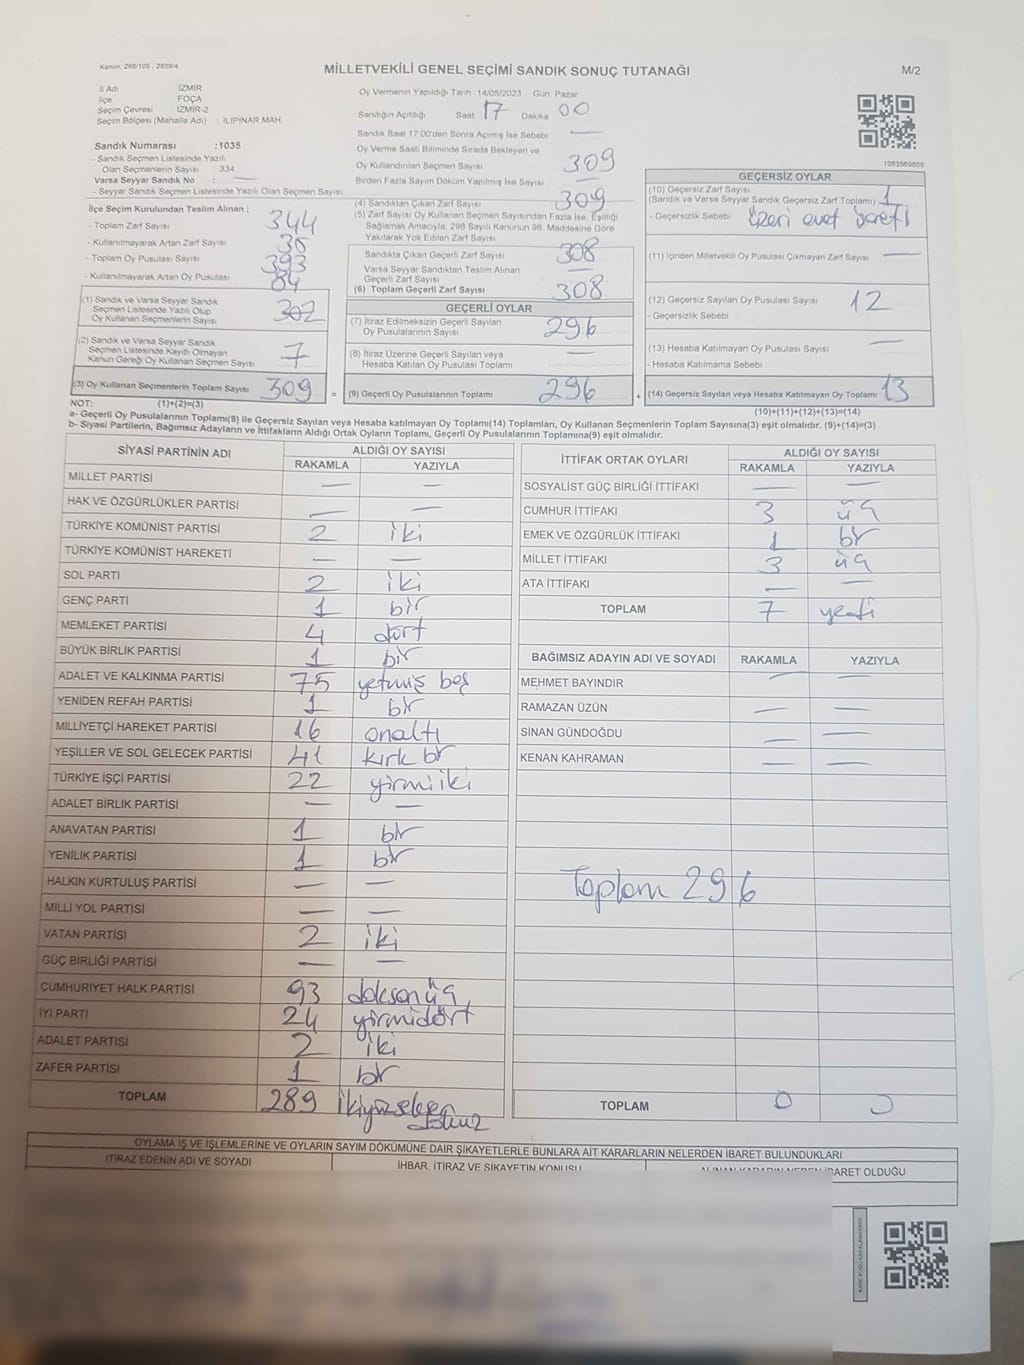 Kanun: 298/105 , 2839/4
MİLLETVEKİLİ GENEL SEÇİMİ SANDIK SONUÇ TUTANAĞI
M/2
İl Adı : İZMİR
İlçe : FOÇA
Seçim Çevresi : İZMİR-2
Seçim Bölgesi (Mahalle Adı) : ILIPINAR MAH.
Oy Vermenin Yapıldığı Tarih 14/05/2023 Gün: Pazar
Sandığın Açıldığı Saat 17 Dakika 00
Sandık Saat 17:00'den Sonra Açılmış İse Sebebi —
Sandık Numarası :1035
- Sandık Seçmen Listesinde Yazılı
Olan Seçmenlerin Sayısı : 334
Varsa Seyyar Sandık No : —
- Seyyar Sandık Seçmen Listesinde Yazılı Olan Seçmen Sayısı: —
Oy Verme Saati Bitiminde Sırada Bekleyen ve
Oy Kullandırılan Seçmen Sayısı 309
Birden Fazla Sayım Döküm Yapılmış İse Sayısı —
1083569809
İlçe Seçim Kurulundan Teslim Alınan :
- Toplam Zarf Sayısı : 344
- Kullanılmayarak Artan Zarf Sayısı : 35
- Toplam Oy Pusulası Sayısı : 393
- Kullanılmayarak Artan Oy Pusulası : 84
(1) Sandık ve Varsa Seyyar Sandık
Seçmen Listesinde Yazılı Olup
Oy Kullanan Seçmenlerin Sayısı : 302
(2) Sandık ve Varsa Seyyar Sandık
Seçmen Listesinde Kayıtlı Olmayan
Kanun Gereği Oy Kullanan Seçmen Sayısı : 7
(3) Oy Kullanan Seçmenlerin Toplam Sayısı 309 =
(4) Sandıktan Çıkan Zarf Sayısı 309
(5) Zarf Sayısı Oy Kullanan Seçmen Sayısından Fazla İse, Eşitliği
Sağlamak Amacıyla, 298 Sayılı Kanunun 98. Maddesine Göre
Yakılarak Yok Edilen Zarf Sayısı
Sandıkta Çıkan Geçerli Zarf Sayısı 308
Varsa Seyyar Sandıktan Teslim Alınan
Geçerli Zarf Sayısı —
(6) Toplam Geçerli Zarf Sayısı 308
GEÇERLİ OYLAR
(7) İtiraz Edilmeksizin Geçerli Sayılan
Oy Pusulalarının Sayısı 296
(8) İtiraz Üzerine Geçerli Sayılan veya
Hesaba Katılan Oy Pusulası Toplamı —
(9) Geçerli Oy Pusulalarının Toplamı 296 +
GEÇERSİZ OYLAR
(10) Geçersiz Zarf Sayısı
(Sandık ve Varsa Seyyar Sandık Geçersiz Zarf Toplamı) 1
- Geçersizlik Sebebi : üzeri evet işaretli
(11) İçinden Milletvekili Oy Pusulası Çıkmayan Zarf Sayısı —
(12) Geçersiz Sayılan Oy Pusulası Sayısı 12
- Geçersizlik Sebebi :
(13) Hesaba Katılmayan Oy Pusulası Sayısı —
- Hesaba Katılmama Sebebi : —
(14) Geçersiz Sayılan veya Hesaba Katılmayan Oy Toplamı 13
NOT: (1)+(2)=(3)
(10)+(11)+(12)+(13)=(14)
a- Geçerli Oy Pusulalarının Toplamı(9) ile Geçersiz Sayılan veya Hesaba katılmayan Oy Toplamı(14) Toplamları, Oy Kullanan Seçmenlerin Toplam Sayısına(3) eşit olmalıdır. (9)+(14)=(3)
b- Siyasi Partilerin, Bağımsız Adayların ve İttifakların Aldığı Ortak Oyların Toplamı, Geçerli Oy Pusulalarının Toplamına(9) eşit olmalıdır.
SİYASİ PARTİNİN ADI ALDIĞI OY SAYISI
RAKAMLA YAZIYLA
MİLLET PARTİSİ — —
HAK VE ÖZGÜRLÜKLER PARTİSİ — —
TÜRKİYE KOMÜNİST PARTİSİ 2 iki
TÜRKİYE KOMÜNİST HAREKETİ — —
SOL PARTİ 2 iki
GENÇ PARTİ 1 bir
MEMLEKET PARTİSİ 4 dört
BÜYÜK BİRLİK PARTİSİ 1 bir
ADALET VE KALKINMA PARTİSİ 75 yetmiş beş
YENİDEN REFAH PARTİSİ 1 bir
MİLLİYETÇİ HAREKET PARTİSİ 16 onaltı
YEŞİLLER VE SOL GELECEK PARTİSİ 41 kırk bir
TÜRKİYE İŞÇİ PARTİSİ 22 yirmiiki
ADALET BİRLİK PARTİSİ — —
ANAVATAN PARTİSİ 1 bir
YENİLİK PARTİSİ 1 bir
HALKIN KURTULUŞ PARTİSİ — —
MİLLİ YOL PARTİSİ — —
VATAN PARTİSİ 2 iki
GÜÇ BİRLİĞİ PARTİSİ — —
CUMHURİYET HALK PARTİSİ 93 doksanüç
İYİ PARTİ 24 yirmidört
ADALET PARTİSİ 2 iki
ZAFER PARTİSİ 1 bir
TOPLAM 289 ikiyüzseksendokuz
İTTİFAK ORTAK OYLARI ALDIĞI OY SAYISI
RAKAMLA YAZIYLA
SOSYALİST GÜÇ BİRLİĞİ İTTİFAKI — —
CUMHUR İTTİFAKI 3 üç
EMEK VE ÖZGÜRLÜK İTTİFAKI 1 bir
MİLLET İTTİFAKI 3 üç
ATA İTTİFAKI — —
TOPLAM 7 yedi
BAĞIMSIZ ADAYIN ADI VE SOYADI RAKAMLA YAZIYLA
MEHMET BAYINDIR — —
RAMAZAN ÜZÜN — —
SİNAN GÜNDOĞDU — —
KENAN KAHRAMAN — —
Toplam 296
TOPLAM 0 0
OYLAMA İŞ VE İŞLEMLERİNE VE OYLARIN SAYIM DÖKÜMÜNE DAİR ŞİKAYETLERLE BUNLARA AİT KARARLARIN NELERDEN İBARET BULUNDUKLARI
İTİRAZ EDENİN ADI VE SOYADI İHBAR, İTİRAZ VE ŞİKAYETİN KONUSU ALINAN KARARIN NEDEN İBARET OLDUĞU